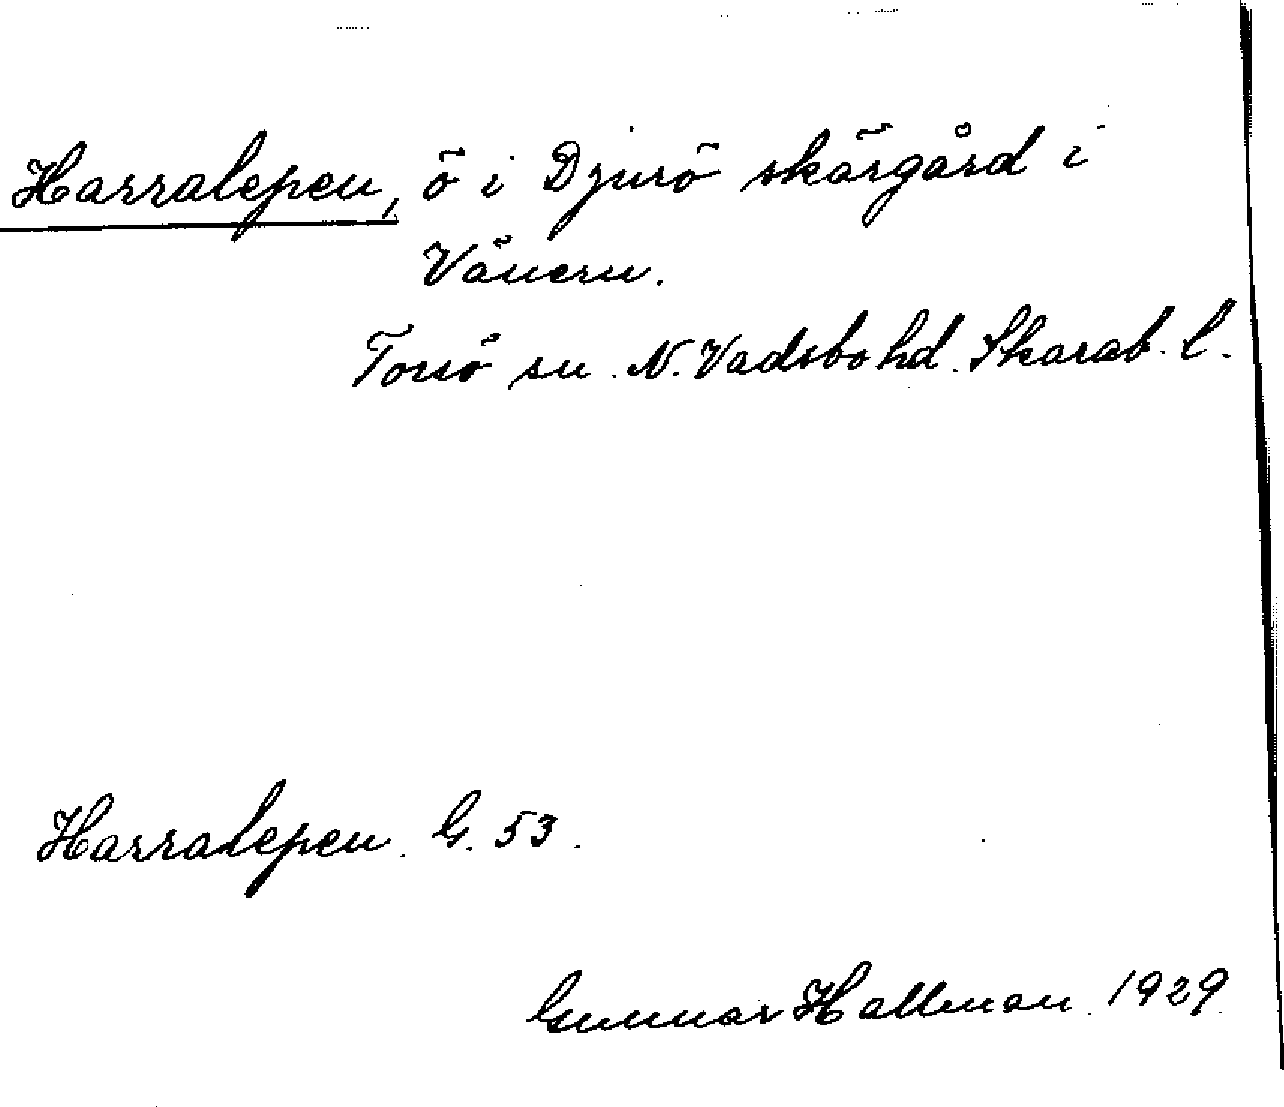 Harralepen, ö i Djurö skärgård i
Vänern.
Torsö sn. N. Vadsbo hd. Skarab. l.
Harralepen. G. 53.
Gunnar Hallman. 1929.